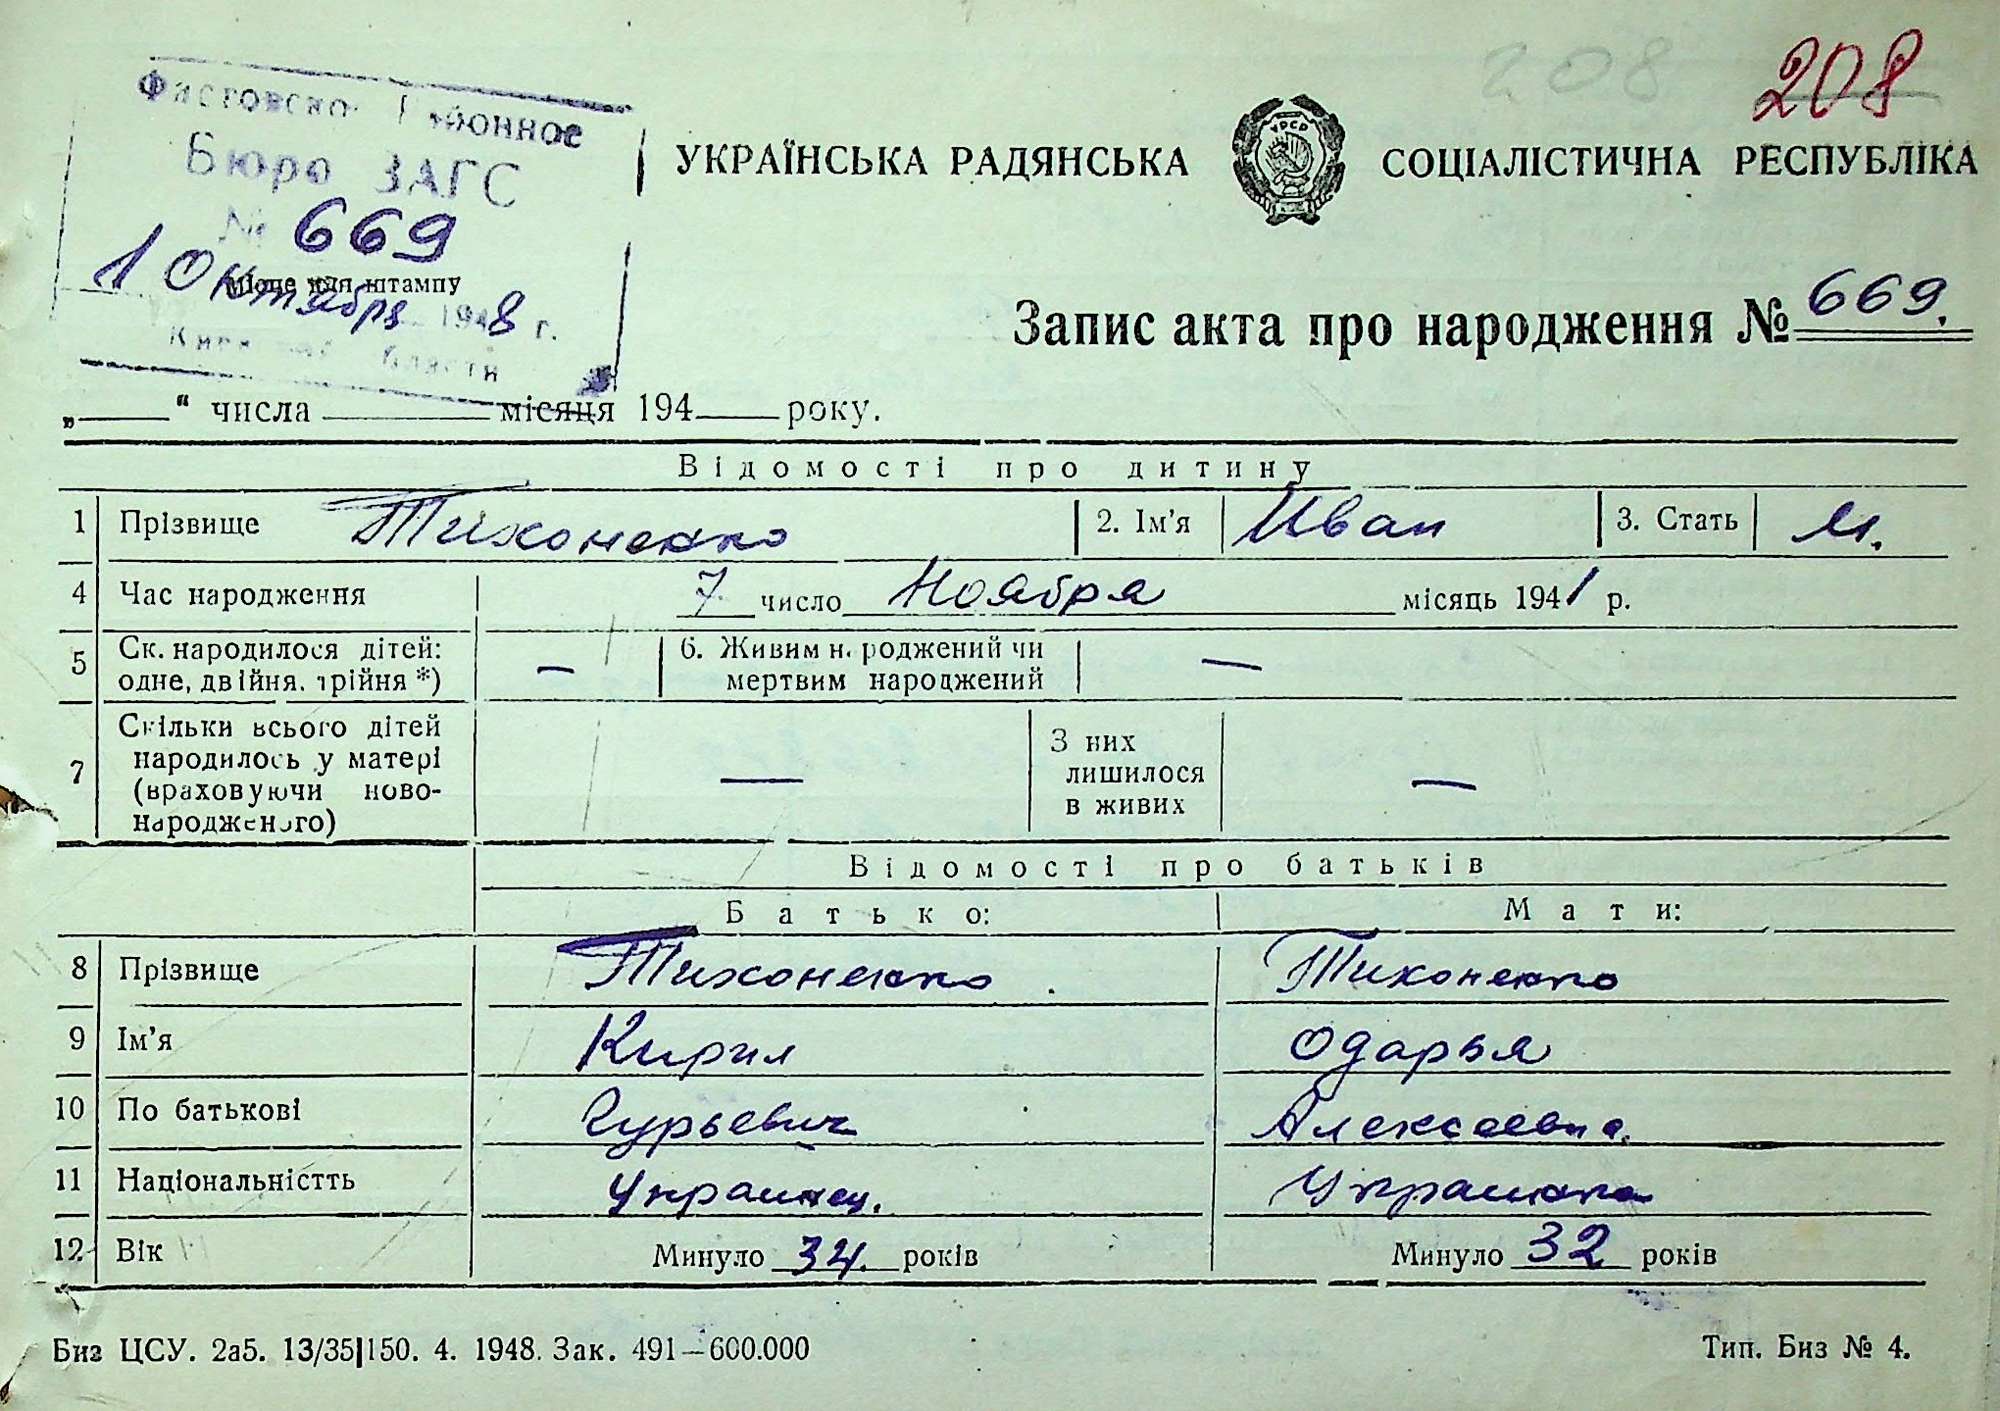 208
208
Районное
Бюро ЗАГС
№ 669
Місце для штампу
1 Октября 1948 г.
УКРАЇНСЬКА РАДЯНСЬКА СОЦІАЛІСТИЧНА РЕСПУБЛІКА
УРСР
Запис акта про народження № 669.
„ “ числа місяця 194 року.
Відомості про дитину
1 Прізвище Тихоненко 2. Ім'я Иван 3. Стать М.
4 Час народження 7 число Ноября місяць 1941 р.
5 Ск. народилося дітей: одне, двійня, трійня *) — 6. Живим народжений чи мертвим народжений —
7 Скільки всього дітей народилось у матері (враховуючи ново-народженого) — З них лишилося в живих —
Відомості про батьків
Батько: Мати:
8 Прізвище Тихоненко Тихоненко
9 Ім'я Кирил Одарья
10 По батькові Гурьевич Алексеевна.
11 Національністть Украинец. Украинка
12 Вік Минуло 34. років Минуло 32 років
Биз ЦСУ. 2а5. 13/35|150. 4. 1948. Зак. 491—600.000 Тип. Биз № 4.